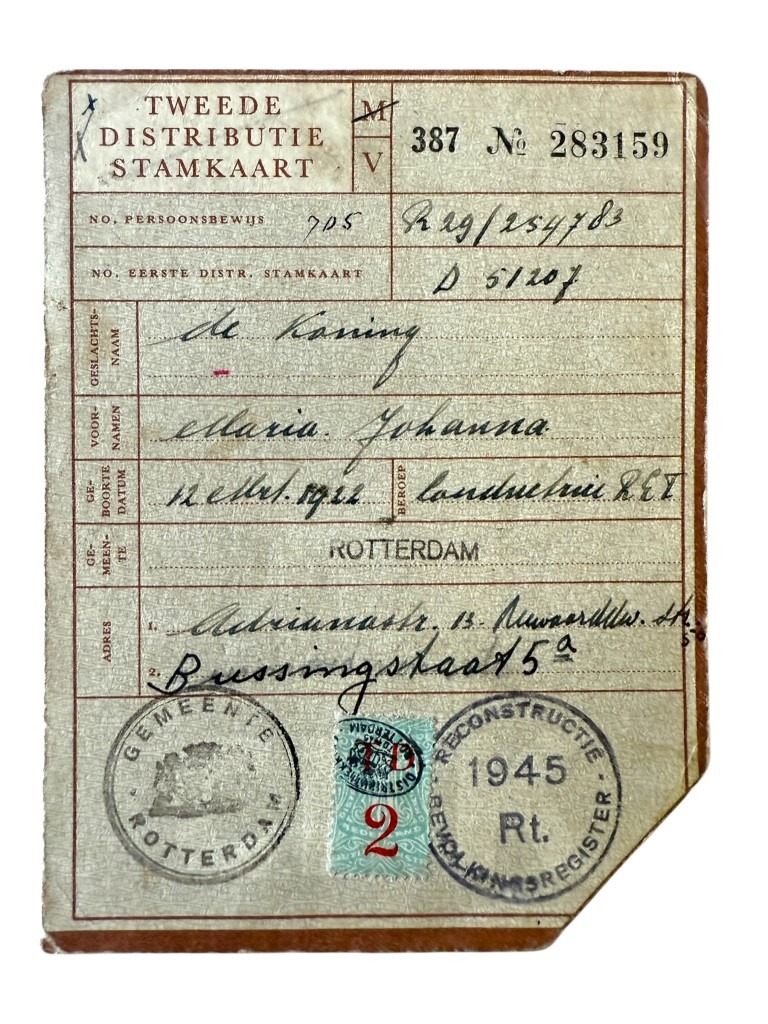 TWEEDE
DISTRIBUTIE
STAMKAART
M
V
387 № 283159
NO. PERSOONSBEWIJS 705 R 29/254783
NO. EERSTE DISTR. STAMKAART D 51207
GESLACHTS-
NAAM
de Koning
VOOR-
NAMEN
Maria Johanna
GE-
BOORTE
DATUM
12 Mrt. 1922
BEROEP
Conductrice R E T
GE-
MEEN-
TE
ROTTERDAM
ADRES
1. Adrianastr. 13.
2. Bussingstraat 5a
GEMEENTE
ROTTERDAM
DISTRIBUTIE
ROTTERDAM
2
RECONSTRUCTIE
1945
Rt.
BEVOLKINGSREGISTER